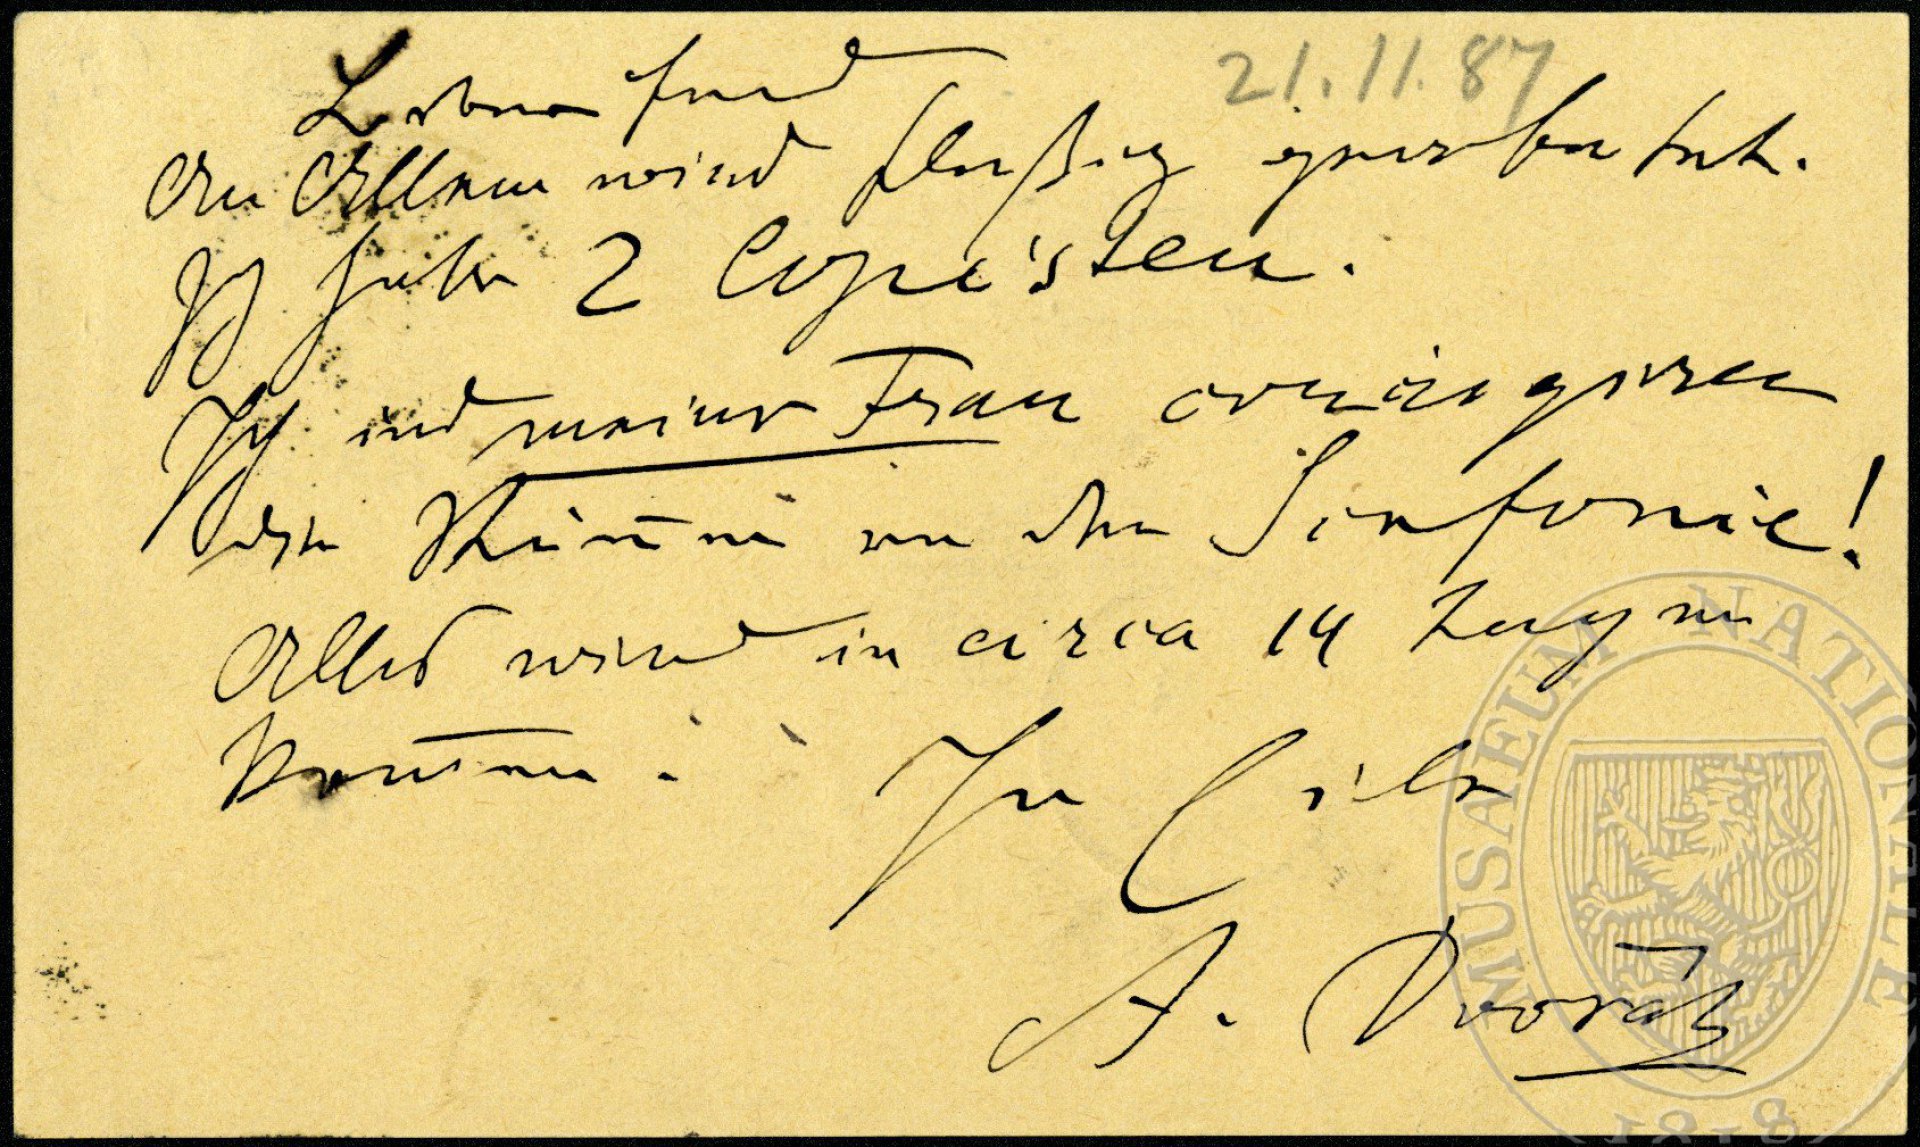 21.11.87
Lieber Freund
An Allem wird fleißig gearbeitet.
Ich habe 2 Copisten.
Ich und meine Frau corrigiren
die Stim̅en von der Sinfonie!
Alles wird in circa 14 Tagen
kom̅en.
In Eile
A. Dvořák
MUSAEUM NATIONALE
1818